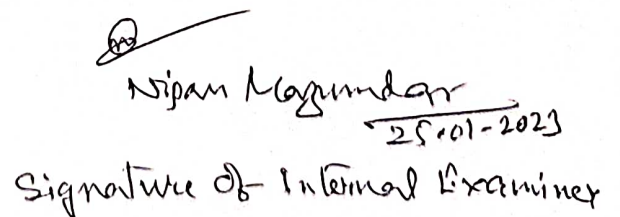 Nipan Mazumdar
25.01-2023
Signature of Internal Examiner